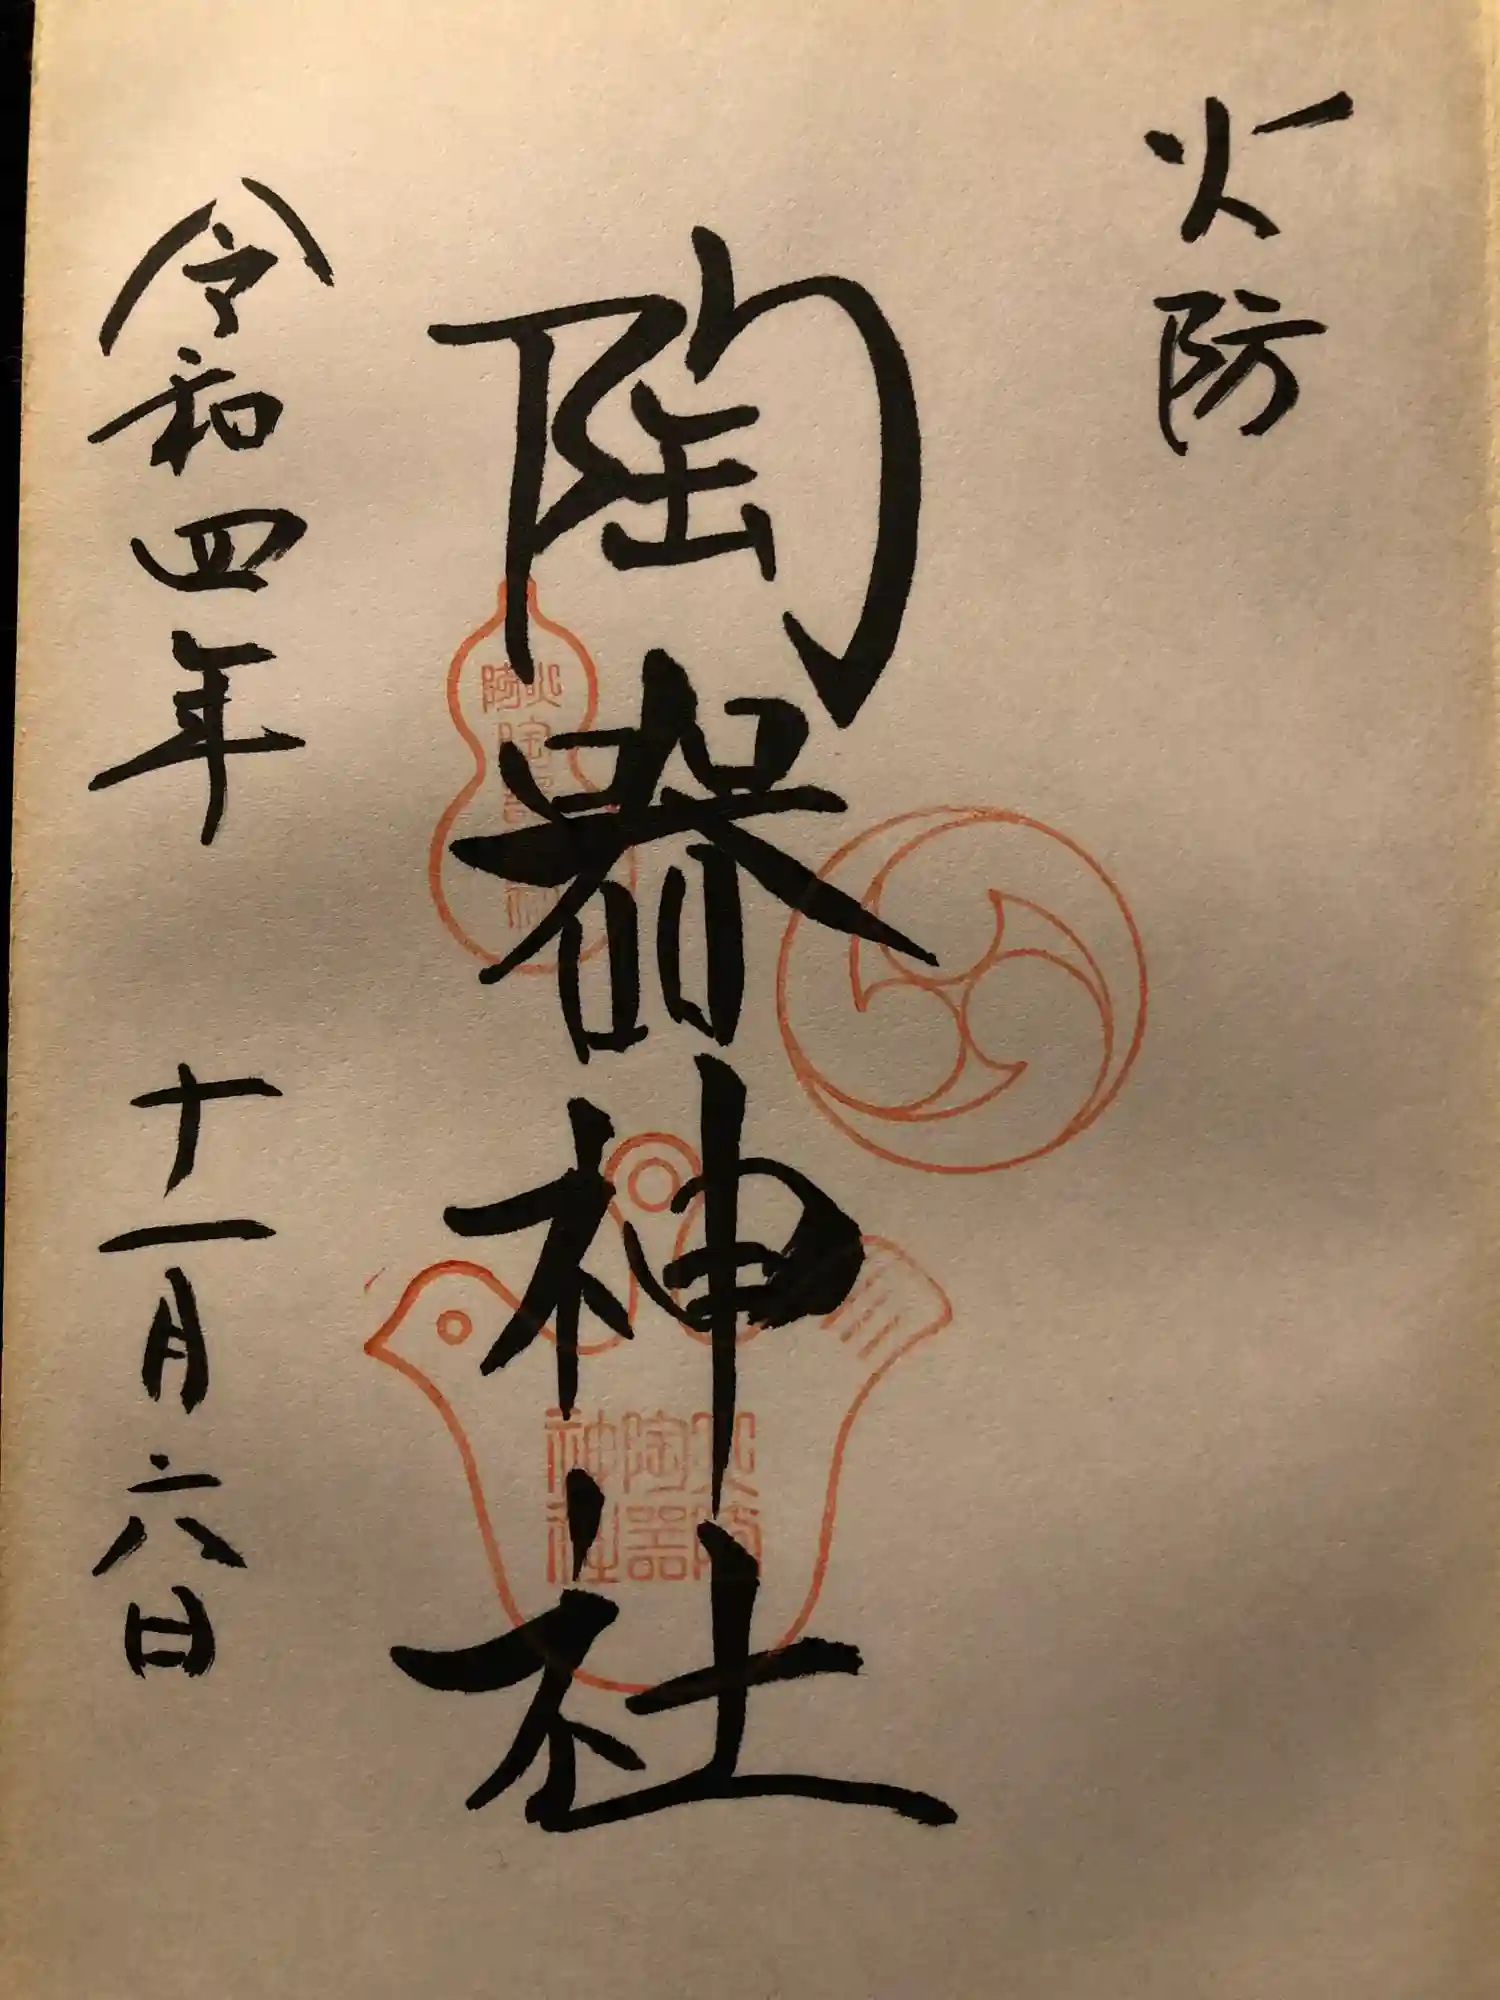 火防
陶器神社
火防
陶器神
火防
陶器
神社
令和四年 十一月六日